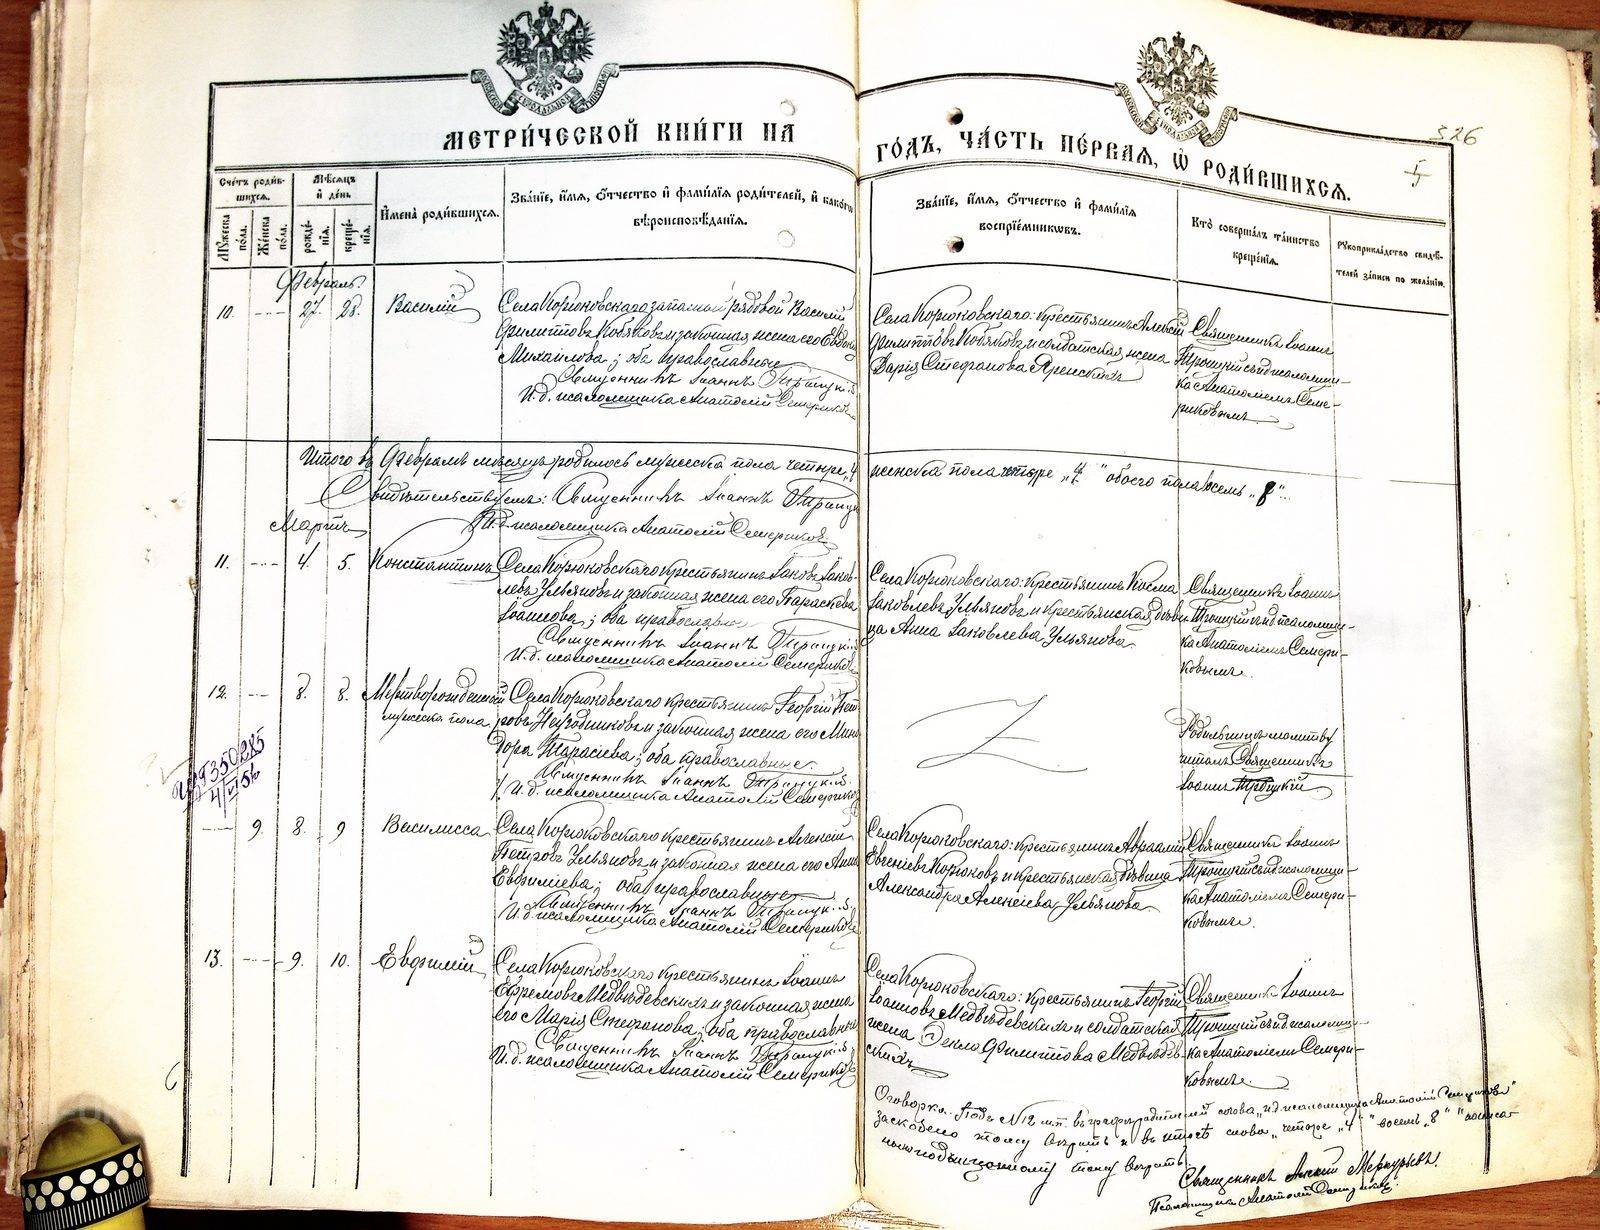 МЕТРИ́ЧЕСКОЙ КНИ́ГИ НА
ГО́ДЪ, ЧА́СТЬ ПЕ́РВАЯ, Ѡ҆ РОДИ́ВШИХСЯ.
326
5
Сче́тъ роди́в-
шихся.
Мѣ́сяцъ
и҆ де́нь
Му́жеска по́ла.
Же́нска по́ла.
рожде́-
нїя.
креще́-
нїя.
И҆мена̀ роди́вшихся.
Зва́нїе, и҆́мя, ѻ҆́тчество и҆ фами́лїя роди́телей, и҆ како́гѡ
вѣроисповѣ́данїя.
Зва́нїе, и҆́мя, ѻ҆́тчество и҆ фами́лїя
воспрїе́мникѡвъ.
Кто̀ соверша́лъ та́инство
креще́нїя.
Рукоприкла́дство свидѣ́-
телей за́писи по жела́нїю.
Февраль
10. 27. 28. Василій
Села Корюковскаго запасный рядовой Василій
Филипповъ Кобяковъ и законная жена его Евдокія
Михайлова; оба православные
Священникъ Іоаннъ Троицкій
И.д. псаломщика Анатолій Семериковъ
Села Корюковскаго: крестьянинъ Алексій
Филипповъ Кобяковъ и солдатская жена
Дарія Стефанова Яренскихъ
Священникъ Іоаннъ
Троицкій съ и.д. псаломщи-
ка Анатоліемъ Семе-
риковымъ
Итого въ Февралѣ мѣсяцѣ родилось мужеска пола четыре „4" женска пола четыре „4" обоего пола восемь „8".
Свидѣтельствуемъ: Священникъ Іоаннъ Троицкій
И.д. псаломщика Анатолій Семериковъ
Мартъ
11. 4. 5. Константинъ
Села Корюковскаго крестьянинъ Іаковъ Іаков-
левъ Ульяновъ и законная жена его Параскева
Іоаннова; оба православные
Священникъ Іоаннъ Троицкій
И.д. псаломщика Анатолій Семериковъ
Села Корюковскаго: крестьянинъ Косма
Іаковлевъ Ульяновъ и крестьянская дѣви-
ца Анна Іаковлева Ульянова
Священникъ Іоаннъ
Троицкій съ и.д. псаломщи-
ка Анатоліемъ Семери-
ковымъ
12. 8. 8. Мертворожденный
мужеска пола
Села Корюковскаго крестьянинъ Георгій Пет-
ровъ и законная жена его Мини-
дора Тарасіева; оба православные.
Священникъ Іоаннъ Троицкій.
И.д. псаломщика Анатолій Семериковъ
Родильницѣ молитву
читалъ Священникъ
Іоаннъ Троицкій
9. 8. 9 Василисса
Села Корюковскаго крестьянинъ Алексій
Петровъ Ульяновъ и законная жена его Анна
Евфиміева; оба православные
Священникъ Іоаннъ Троицкій.
И.д. псаломщика Анатолій Семериковъ
Села Корюковскаго: крестьянинъ Авраамій
Евгеніевъ Корюковъ и крестьянская дѣвица
Александра Алексіева Ульянова
Священникъ Іоаннъ
Троицкій съ и.д. псаломщи-
ка Анатоліемъ Семери-
ковымъ.
13. 9. 10. Евфимій
Села Корюковскаго крестьянинъ Іоаннъ
Ефремовъ Медвѣдевскихъ и законная жена
его Марія Стефанова; оба православные
Священникъ Іоаннъ Троицкій.
И.д. псаломщика Анатолій Семериковъ
Села Корюковскаго: крестьянинъ Георгій
Іоанновъ Медвѣдевскихъ и солдатская
жена Ѳекла Филиппова Медвѣдев-
скихъ
Священникъ Іоаннъ
Троицкій съ и.д. псаломщи-
ка Анатоліемъ Семери-
ковымъ.
Оговорка. Подъ № 12 м.п. въ графѣ родителей слова „и.д. псаломщика Анатолій Семериковъ"
заскоблено тому вѣрить и въ итогѣ слова „четыре „4" восемь „8" написа-
но тому вѣрить.
Священникъ Меркурьевъ.
Псаломщикъ Анатолій Семериковъ.